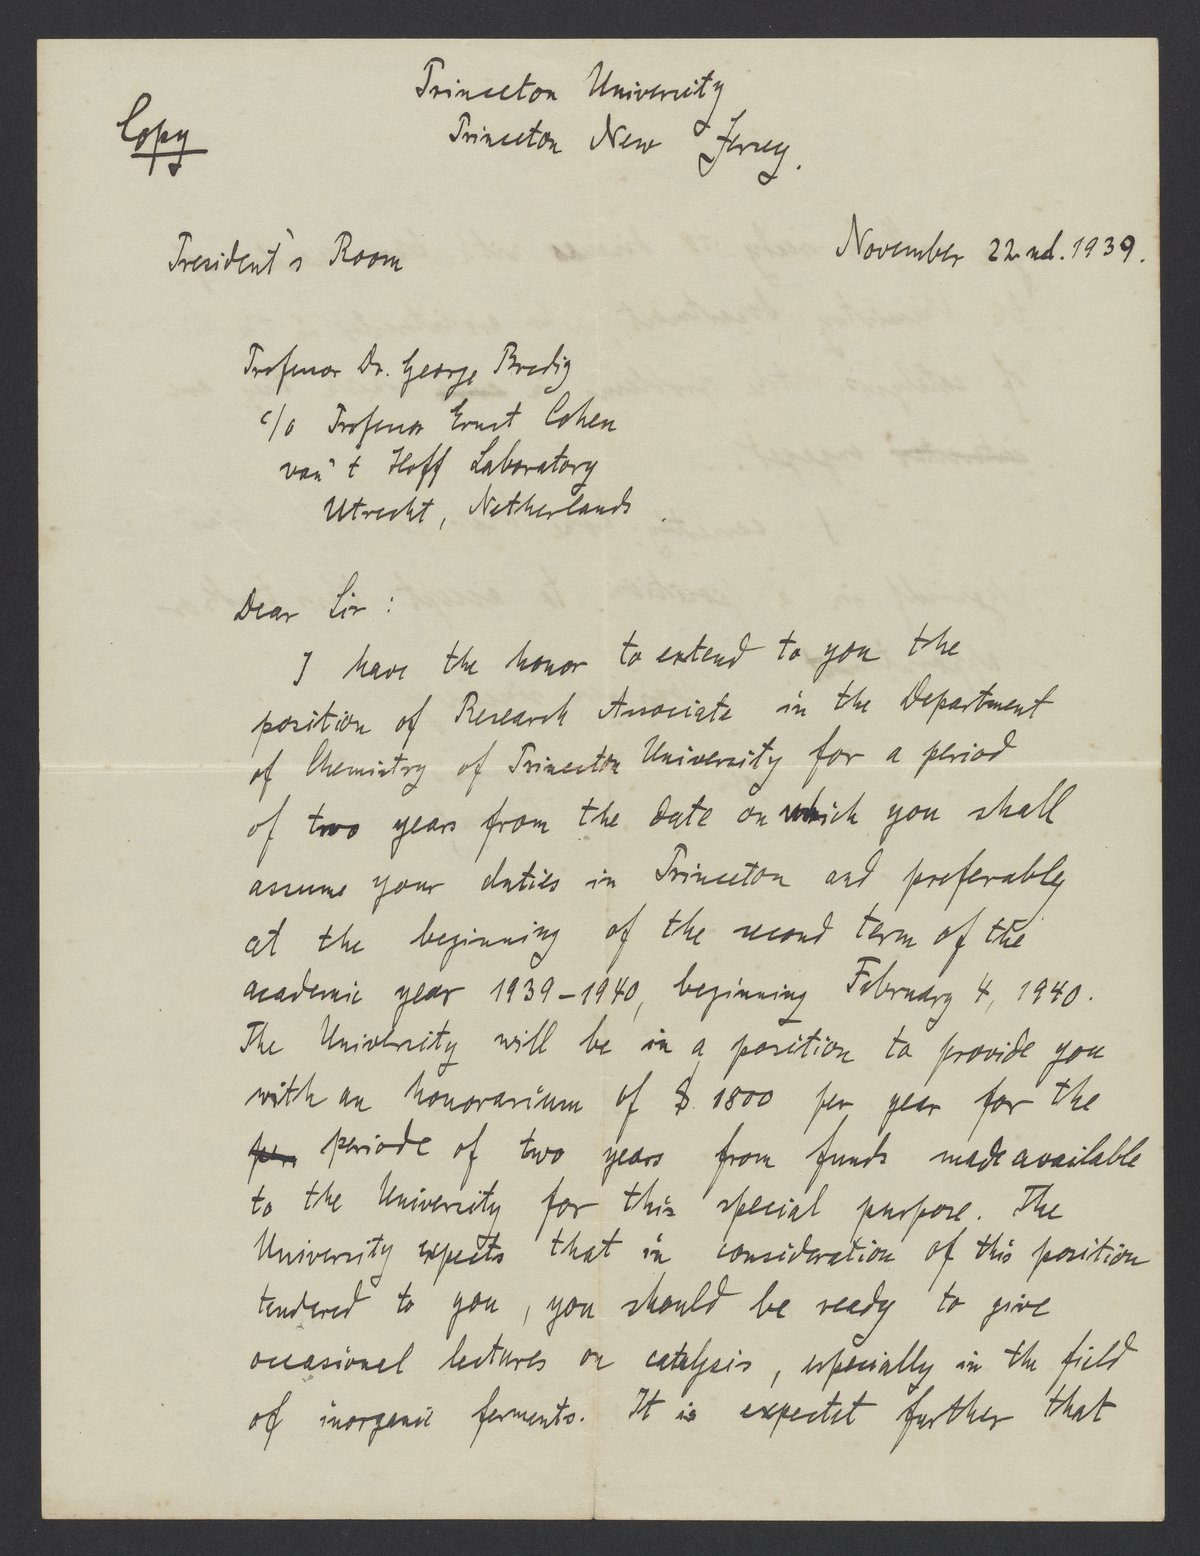 Princeton University
Copy
Princeton New Jersey.
President's Room
November 22nd. 1939.
Professor Dr. George Bredig
c/o Professor Ernst Cohen
van 't Hoff Laboratory
Utrecht, Netherlands.
Dear Sir:
I have the honor to extend to you the
position of Research Associate in the Department
of Chemistry of Princeton University for a period
of two years from the date on which you shall
assume your duties in Princeton and preferably
at the beginning of the second term of the
academic year 1939-1940, beginning February 4, 1940.
The University will be in a position to provide you
with an honorarium of $ 1800 per year for the
periode of two years from funds made available
to the University for this special purpose. The
University expects that in consideration of this position
tendered to you, you should be ready to give
occasional lectures on catalysis, especially in the field
of inorganic ferments. It is expectet further that